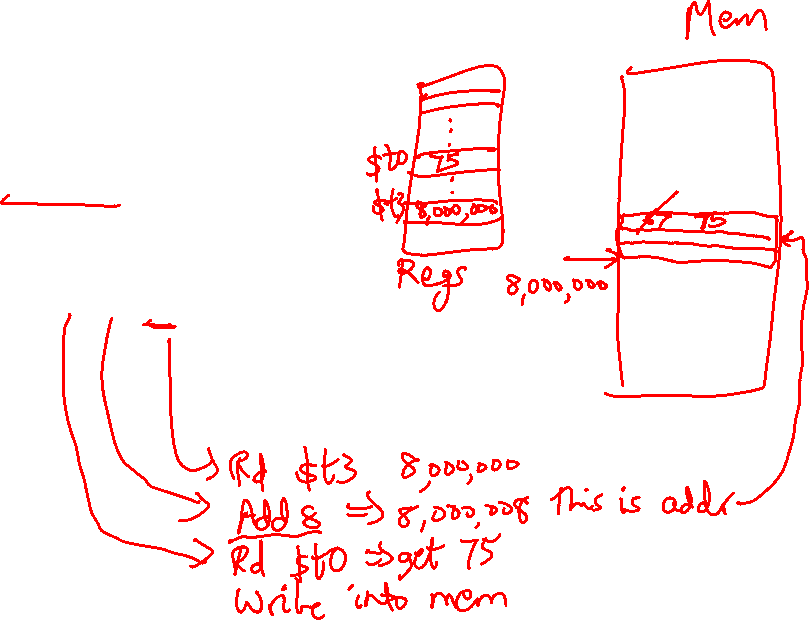 Mem
$t0 75
$t3 8,000,000
75
Regs
8,000,000
Rd $t3 8,000,000
Add 8 => 8,000,008 this is addr
Rd $t0 => get 75
Write into mem